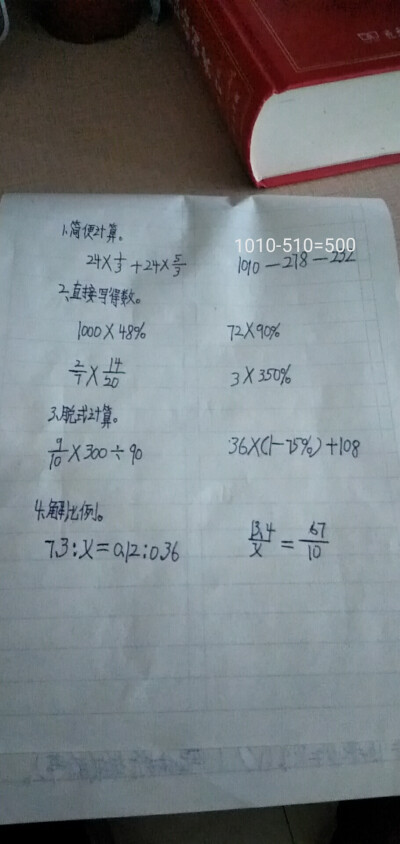 1.简便计算。
1010-510=500
24×1/3+24×5/3 1010-278-232
2.直接写得数。
1000×48% 72×90%
2/7×14/20 3×350%
3.脱式计算。
9/10×300÷90 36×(1-75%)+108
4.解比例。
7.3:x=0.12:0.36 13.4/x=6.7/10